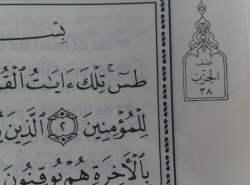 بِسْـ
طسٓۚ تِلْكَ ءَايَٰتُ ٱلْقُـ
لِلْمُؤْمِنِينَ ٢ ٱلَّذِينَ يُـ
بِٱلْأَخِرَةِ هُمْ يُوقِنُونَ
نصف
الحزب
٣٨